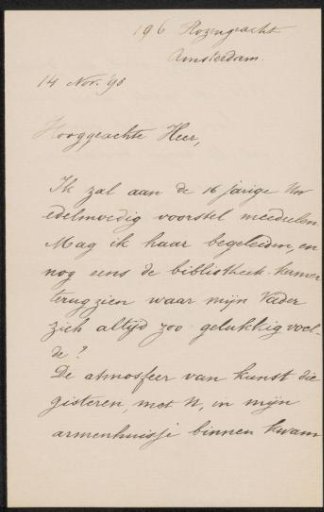 196 Rozengracht
Amsterdam
14 Nov. 98
Hooggeachte Heer,
Ik zal aan de 16 jarige Uw
edelmoedig voorstel meedeelen
Mag ik haar begeleiden, en
nog eens de bibliotheek-kamer
terugzien waar mijn Vader
zich altijd zoo gelukkig voel-
de?
De atmosfeer van kunst die
gisteren, met U, in mijn
armenhuisje binnen kwam